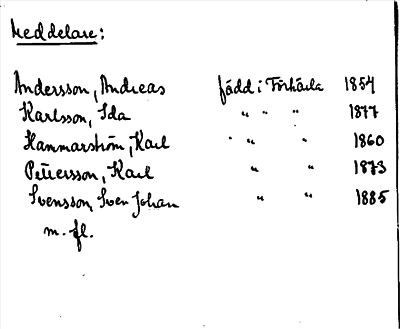 Meddelare:
Andersson, Andreas född i Törhärla 1854
Karlsson, Ida " " " 1877
Hammarström, Karl " " " 1860
Pettersson, Karl " " 1873
Svensson, Sven Johan " " 1885
m. fl.